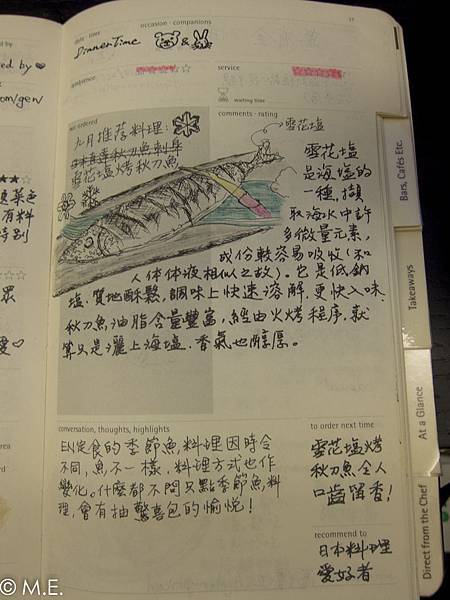 11
date · time
occasion · companions
Dinner Time
&
ambience
service
waiting time
we ordered
comments · rating
九月推荐料理:
雪花塩烤秋刀魚
雪花塩
雪花塩
是海塩的
一種, 擷
取海水中許
多微量元素,
成份較容易吸收(和
人体体液相似之故)。它是低鈉
塩. 質地酥鬆, 調味上快速溶解. 更快入味.
秋刀魚油脂含量豐富, 經由火烤程序. 就
算只是灑上海塩. 香氣也醇厚。
conversation, thoughts, highlights
EN定食的季節魚料理因時令
不同, 魚不一樣, 料理方式也作
變化。什麼都不問只點季節魚料
理, 會有抽驚喜包的愉悅!
to order next time
雪花塩烤
秋刀魚令人
口齒留香!
recommend to
日本料理
愛好者
Bars, Cafés Etc.
Takeaways
At a Glance
Direct from the Chef
© M.E.